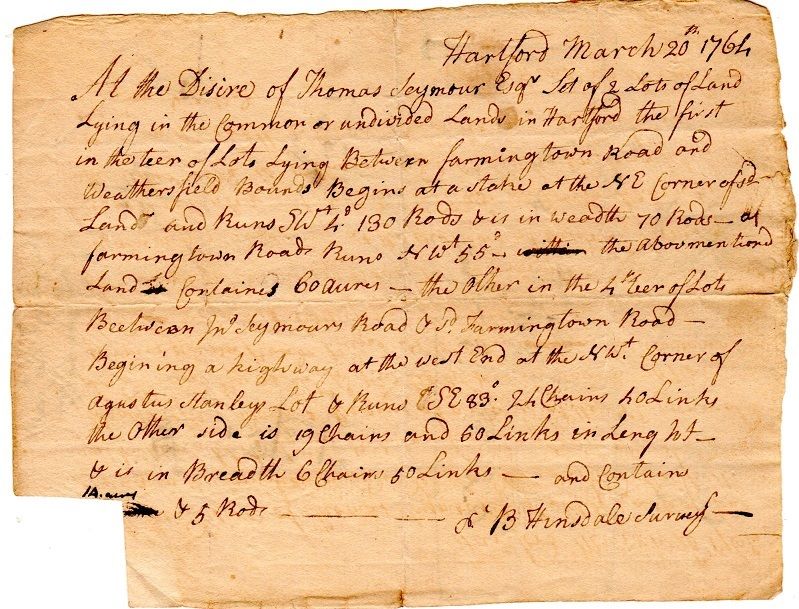 Hartford March 20th 1764
At the Disire of Thomas Seymour Esqr Set of 2 Lots of Land
Lying in the Common or undivided Lands in Hartford the first
in the teer of Lots Lying Between farmingtown Road and
Weathersfield Bounds Begins at a stake at the NE Corner of sd
Land and Runs SWt 4° 130 Rods & is in weadth 70 Rods — at
farmingtown Road Runs NWt 55° — the Abovmentiond
Land Containes 60 acres — the Other in the 4th teer of Lots
Beetween Jno Seymours Road & sd Farmingtown Road —
Begining a highway at the west End at the NWt Corner of
Agustus Stanleys Lot & Runs ESE 83° 24 Chains 40 Links
the Other side is 19 Chains and 60 Links in Lenght —
& is in Breadth 6 Chains 50 Links — and Contains
14 acres & 5 Rods — — — pr B Hinsdale Surveyr —